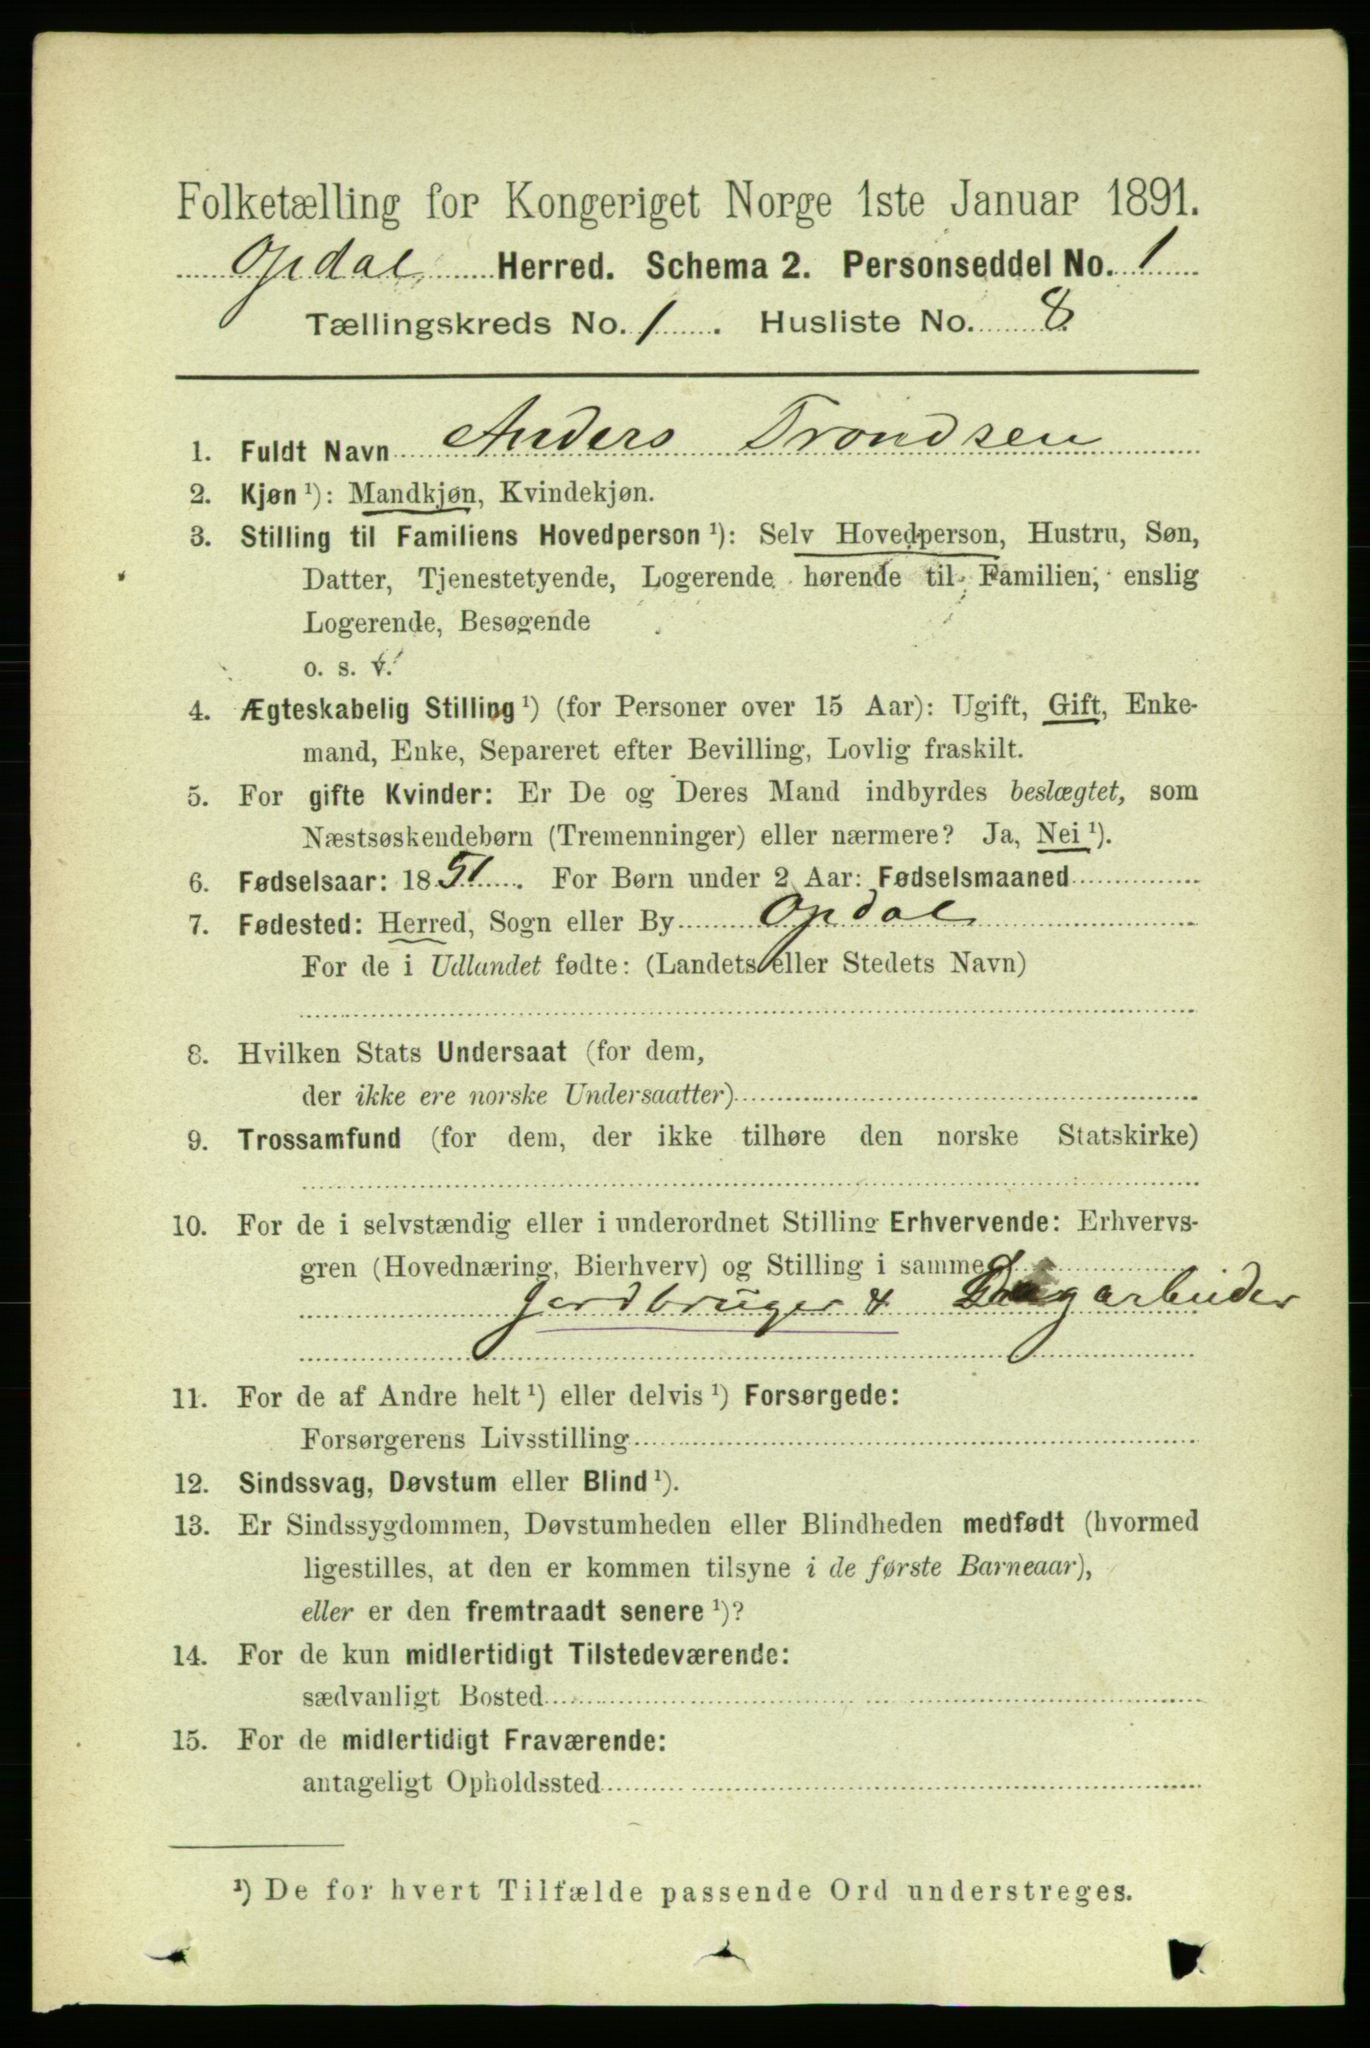 Folketælling for Kongeriget Norge 1ste Januar 1891.
Opdal Herred. Schema 2. Personseddel No. 1
Tællingskreds No. 1. Husliste No. 8
1. Fuldt Navn Anders Trondsen
2. Kjøn ¹): Mandkjøn, Kvindekjøn.
3. Stilling til Familiens Hovedperson ¹): Selv Hovedperson, Hustru, Søn,
Datter, Tjenestetyende, Logerende hørende til Familien, enslig
Logerende, Besøgende
o. s. v.
4. Ægteskabelig Stilling ¹) (for Personer over 15 Aar): Ugift, Gift, Enke-
mand, Enke, Separeret efter Bevilling, Lovlig fraskilt.
5. For gifte Kvinder: Er De og Deres Mand indbyrdes beslægtet, som
Næstsøskendebørn (Tremenninger) eller nærmere? Ja, Nei ¹).
6. Fødselsaar: 1851. For Børn under 2 Aar: Fødselsmaaned
7. Fødested: Herred, Sogn eller By Opdal
For de i Udlandet fødte: (Landets eller Stedets Navn)
8. Hvilken Stats Undersaat (for dem,
der ikke ere norske Undersaatter)
9. Trossamfund (for dem, der ikke tilhøre den norske Statskirke)
10. For de i selvstændig eller i underordnet Stilling Erhvervende: Erhvervs-
gren (Hovednæring, Bierhverv) og Stilling i samme
Jordbruger & Dagarbeider
11. For de af Andre helt ¹) eller delvis ¹) Forsørgede:
Forsørgerens Livsstilling
12. Sindssvag, Døvstum eller Blind ¹).
13. Er Sindssygdommen, Døvstumheden eller Blindheden medfødt (hvormed
ligestilles, at den er kommen tilsyne i de første Barneaar),
eller er den fremtraadt senere ¹)?
14. For de kun midlertidigt Tilstedeværende:
sædvanligt Bosted
15. For de midlertidigt Fraværende:
antageligt Opholdssted
¹) De for hvert Tilfælde passende Ord understreges.